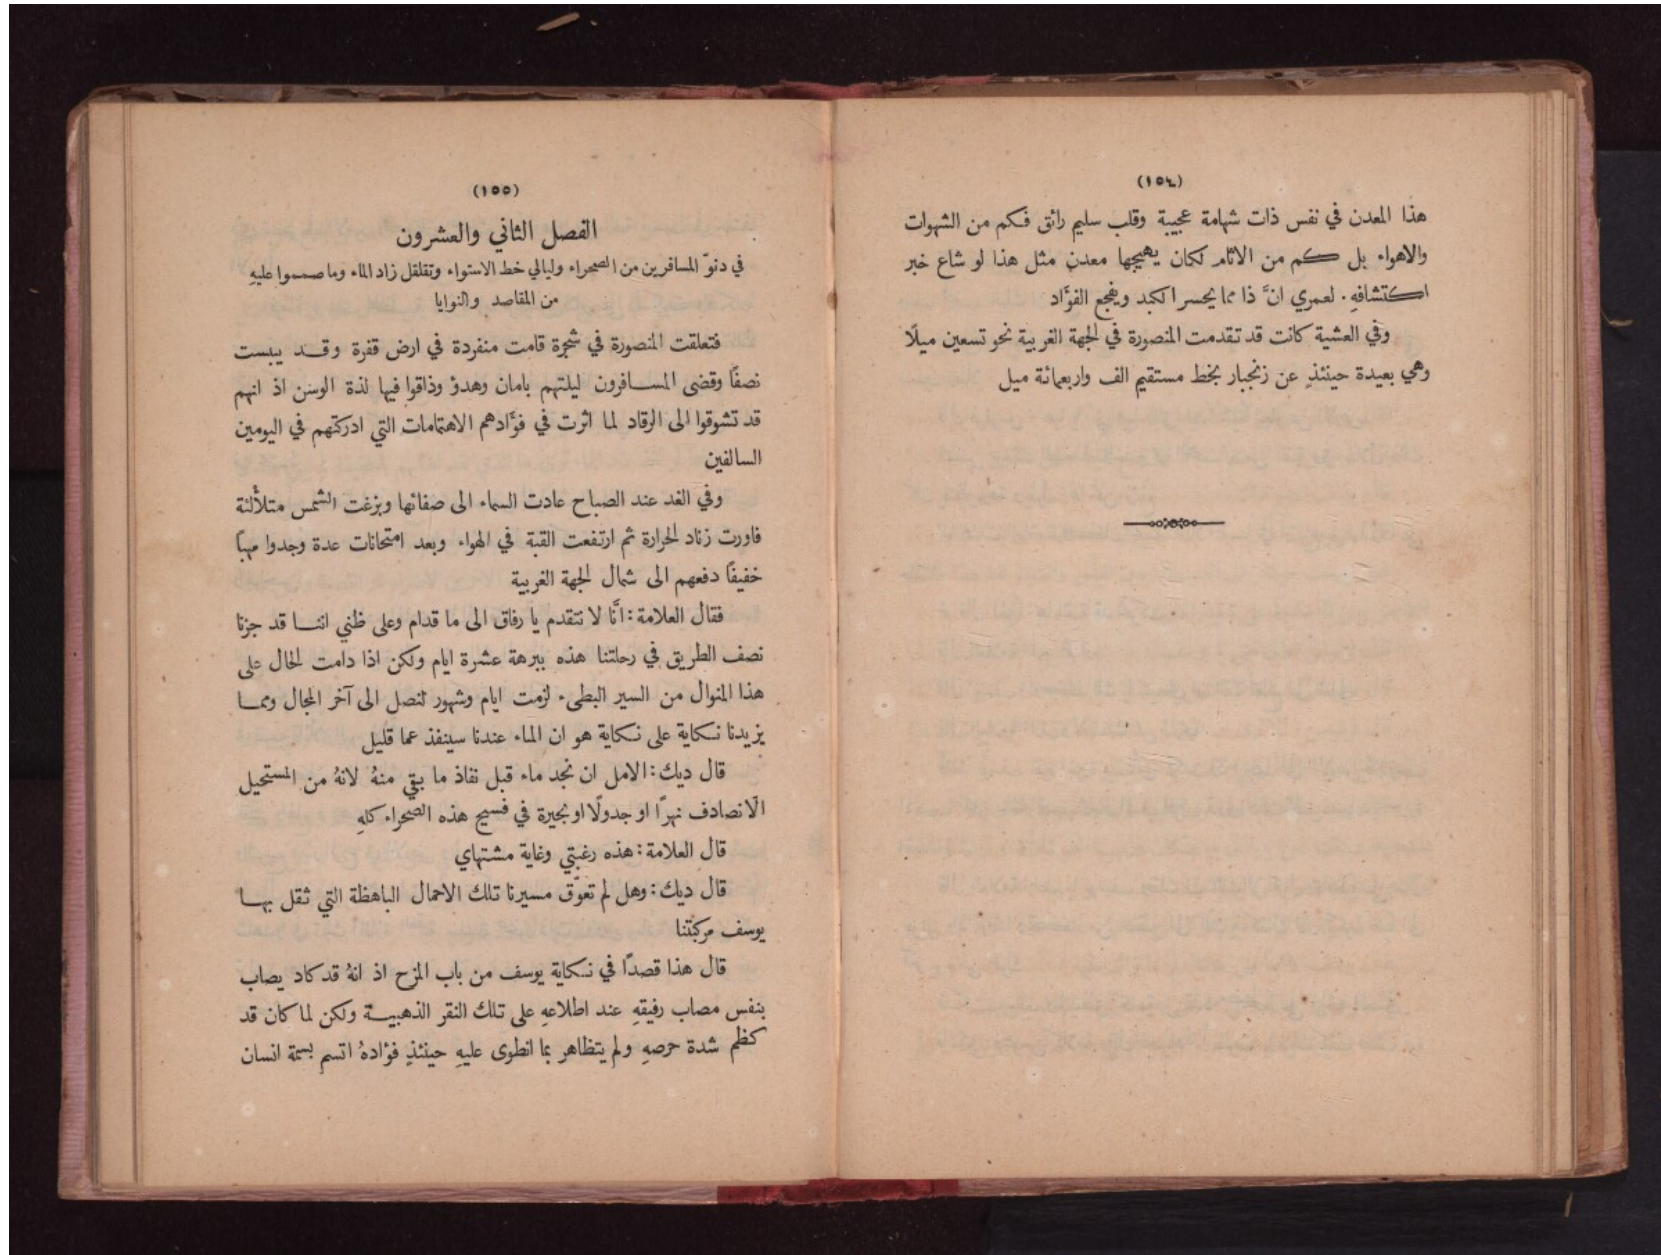 (١٥٤)
هذا المعدن في نفس ذات شهامة عجيبة وقلب سليم رائق فكم من الشهوات
والاهواء بل كم من الآثام لكان يهيجها معدن مثل هذا لو شاع خبر
اكتشافهِ. لعمري انَّ ذا مما يحسر الكبد ويفجع الفؤَاد
وفي العشية كانت قد تقدمت المنصورة في الجهة الغربية نحو تسعين ميلًا
وهي بعيدة حينئذٍ عن زنجبار بخط مستقيم الف واربعمائة ميل
(١٥٥)
الفصل الثاني والعشرون
في دنوّ المسافرين من الصحراء وليالي خط الاستواء وتقلقل زاد الماء وما صمموا عليهِ
من المقاصد والنوايا
فتعلقت المنصورة في شجرة قامت منفردة في ارض قفرة وقد يبست
نصفًا وقضى المسافرون ليلتهم بامان وهدوٍّ وذاقوا فيها لذة الوسن اذ انهم
قد تشوقوا الى الرقاد لما اثرت في فؤَادهم الاهتمامات التي ادركتهم في اليومين
السالفين
وفي الغد عند الصباح عادت السماء الى صفائها وبزغت الشمس متلألئة
فاورت زناد الحرارة ثم ارتفعت القبة في الهواء وبعد امتحانات عدة وجدوا مهبًا
خفيفًا دفعهم الى شمال الجهة الغربية
فقال العلامة: انَّا لا نتقدم يا رفاق الى ما قدام وعلى ظني اننا قد جزنا
نصف الطريق في رحلتنا هذه ببرهة عشرة ايام ولكن اذا دامت الحال على
هذا المنوال من السير البطيء لزمت ايام وشهور لنصل الى آخر المجال ومما
يزيدنا نكاية على نكاية هو ان الماء عندنا سينفذ عما قليل
قال ديك: الامل ان نجد ماء قبل نفاذ ما بقي منهُ لانهُ من المستحيل
الّا نصادف نهرًا او جدولًا او بحيرة في فسيح هذه الصحراء كلهِ
قال العلامة: هذه رغبتي وغاية مشتهاي
قال ديك: وهل لم تعوّق مسيرنا تلك الاحمال الباهظة التي ثقل بها
يوسف مركبتنا
قال هذا قصدًا في نكاية يوسف من باب المزح اذ انهُ قد كاد يصاب
بنفس مصاب رفيقهِ عند اطلاعهِ على تلك النقر الذهبية ولكن لما كان قد
كظم شدة حرصهِ ولم يتظاهر بما انطوى عليهِ حينئذٍ فؤادهُ اتسم بسمة انسان